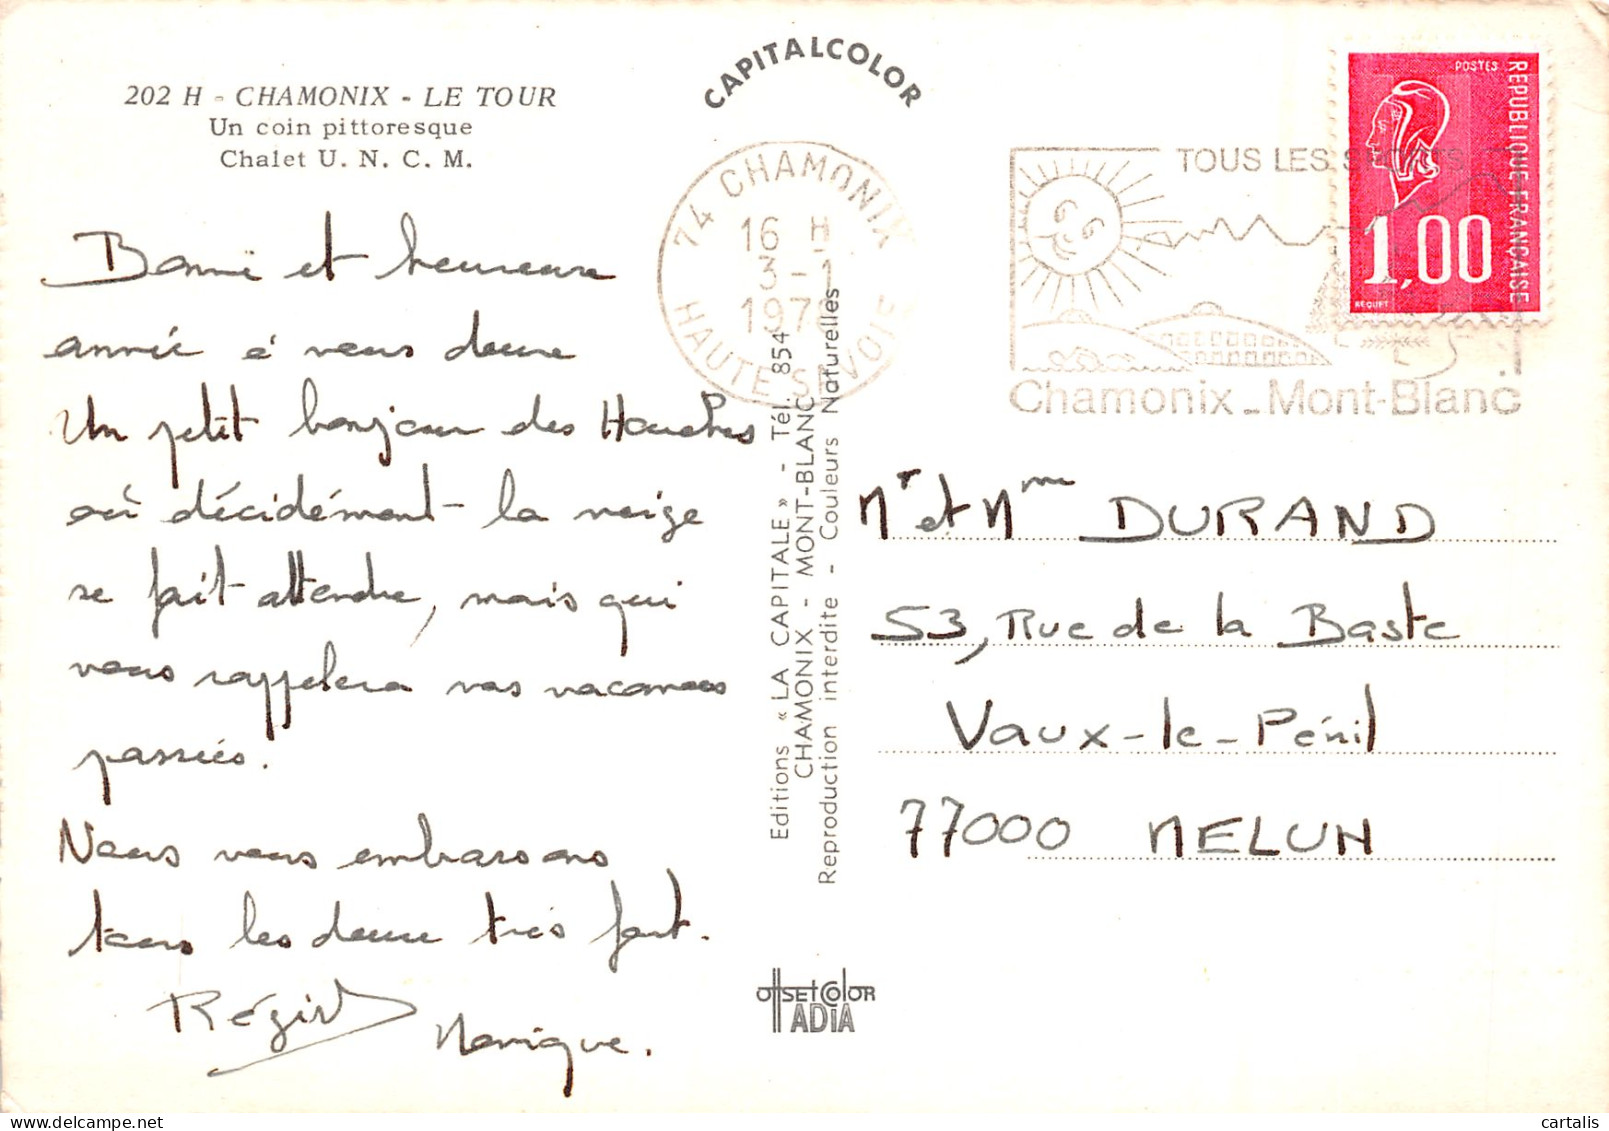 202 H - CHAMONIX - LE TOUR
Un coin pittoresque
Chalet U. N. C. M.
Bonne et heureuse
année à vous deux
Un petit bonjour des Houches
où décidément la neige
se fait attendre, mais qui
vous rappelera vos vacances
passées.
Nous vous embrassons
tous les deux très fort.
Régis
Monique.
CAPITALCOLOR
74 CHAMONIX
16 H
3 - 1
197
HAUTE SAVOIE
Editions « LA CAPITALE » - Tél. 854
CHAMONIX - MONT-BLANC
Reproduction interdite - Couleurs Naturelles
OFFSET COLOR
ADIA
TOUS LES SPORTS
Chamonix - Mont-Blanc
POSTES
REPUBLIQUE FRANÇAISE
1,00
BEQUET
Mr et Mme DURAND
53, Rue de la Baste
Vaux-le-Pénil
77000 MELUN
cartalis